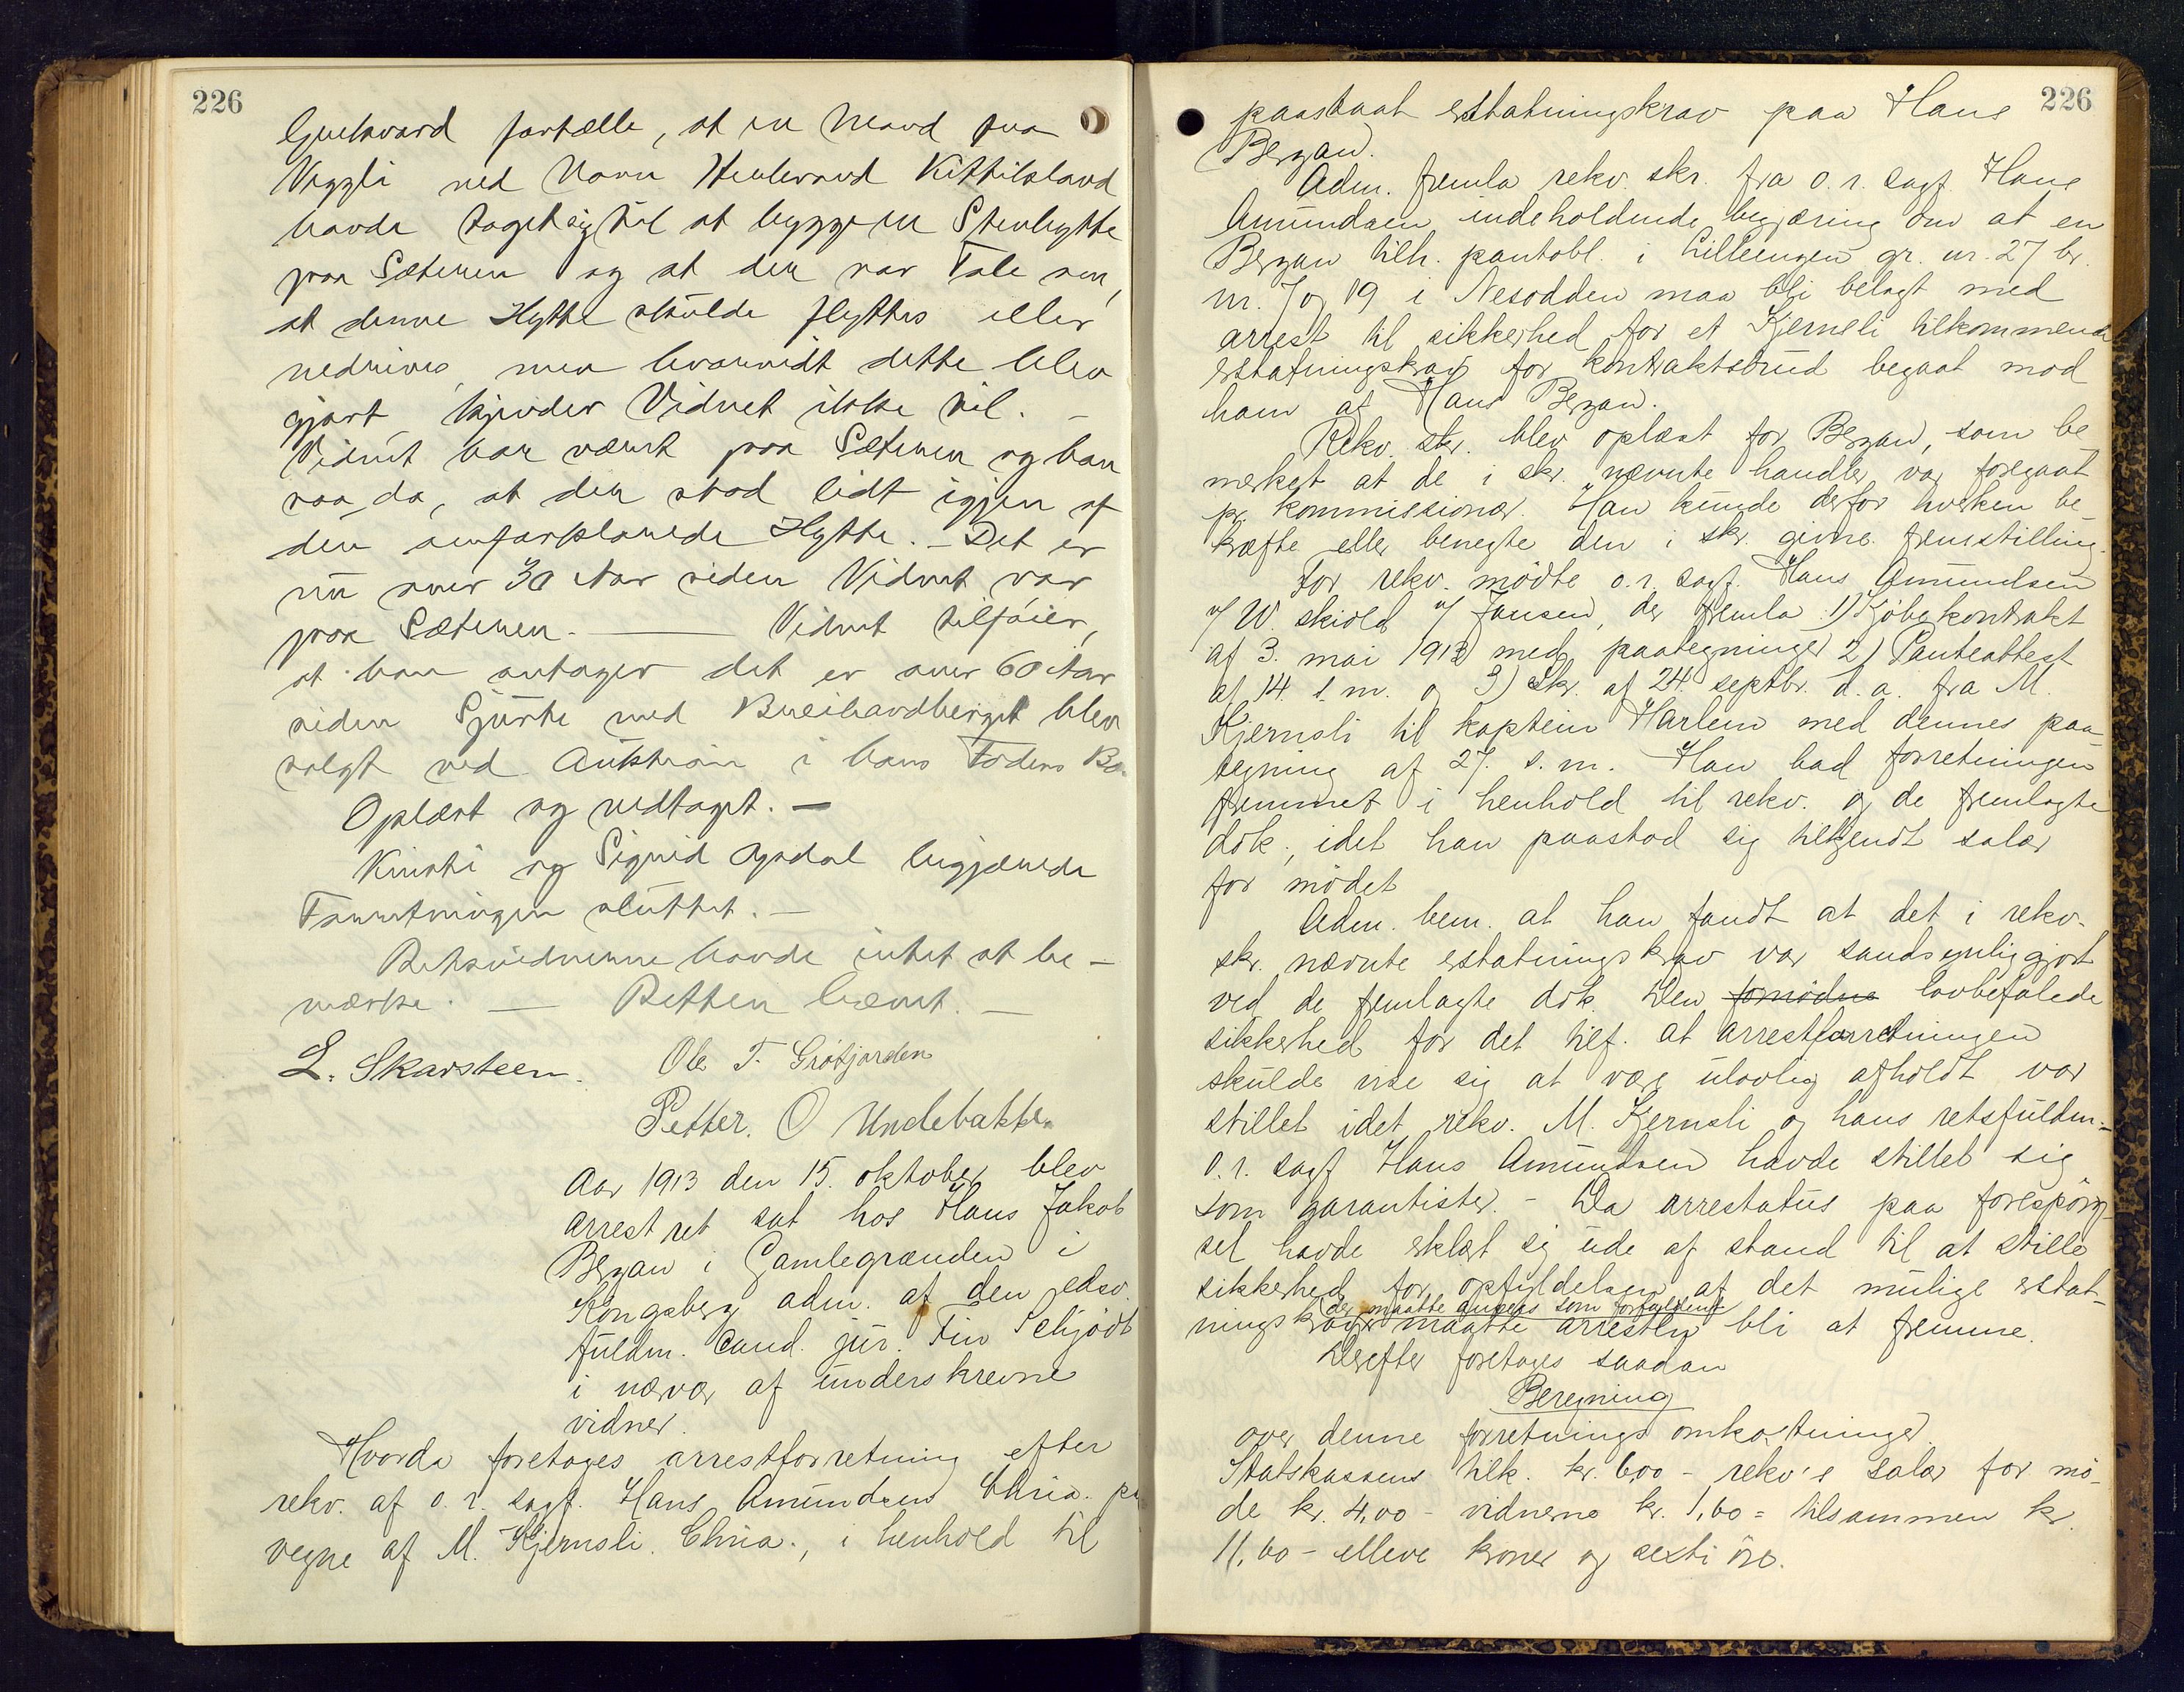 226
fortælle, at en Mand fra
Veggli ved Navn Kittilsland
havde taget sig til at bygge en Stenhytte
paa Sæteren og at der var Tale om,
at denne Hytte skulde flyttes eller
nedrives, men hvorvidt dette blev
gjort, kjender Vidnet ikke til. –
Vidnet har været paa Sæteren og han
saa da, at der stod lidt igjen af
den omforklarede Hytte. – Det er
nu over 30 Aar siden Vidnet var
paa Sæteren. — Vidnet tilføier,
at han antager det er over 60 Aar
siden Sjurte med blev
solgt ved Auktion i hans Faders Bo.
Oplæst og vedtaget. –
Kirsti og Sigrid Opdal begjærede
Forretningen sluttet. –
Retsvidnerne havde intet at be-
mærke. — Retten hævet. –
L. Skarsteen. Ole T. Grøtjorden
Petter. O Undebakke
Aar 1913 den 15. oktober blev
arrestret sat hos Hans Jakob
Bergan i Gamlegrænden i
Kongsberg adm. af den edsv.
fuldm. Cand. jur. Fin Schjødt
i nærvær af underskrevne
vidner.
Hvorda foretoges arrestforretning efter
rekv. af o. r. sagf. Hans Amundsen Chria. paa
vegne af M. Kjernsli, Chria., i henhold til
226
paastaat erstatningskrav paa Hans
Bergan.
Adm. fremla rekv. skr. fra o. r. sagf. Hans
Amundsen indeholdende begjæring om at en
Bergan tilh. pantobl. i Lilleengen gr. nr. 27 br.
nr. 7 og 19 i Nesodden maa bli belagt med
arrest til sikkerhed for et Kjernsli tilkommende
erstatningskrav for kontraktsbrud begaat mod
ham af Hans Bergan.
Rekv. skr. blev oplæst for Bergan, som be-
merket at de i skr. nævnte handler var foregaat
pr. kommissionær. Han kunde derfor hverken be-
kræfte eller benegte den i skr. givne fremstilling.
For rekv. mødte o. r. sagf. Hans Amundsen
v/ W. Skiold v/ Jansen, der fremla 1) Kjøbekontrakt
af 3. mai 1913 med paategninger 2) Panteattest
af 14. s. m. og 3) Skr. af 24. septbr. d. a. fra M.
Kjernsli til kaptein Harlem med dennes paa-
tegning af 27. s. m. Han bad forretningen
fremmet i henhold til rekv. og de fremlagte
dok., idet han paastod sig tilkjendt salær
for mødet
Adm. bem. at han fandt at det i rekv.
skr. nævnte erstatningskrav var sandsynliggjort
ved de fremlagte dok. Den fornødne lovbefalede
sikkerhed for det tilf. at arrestforretningen
skulde vise sig at være ulovlig afholdt var
stillet idet rekv. M. Kjernsli og hans retsfuldm.
o. r. sagf Hans Amundsen havde stillet sig
som garantister. – Da arrestatus paa forespørg-
sel havde erklært sig ude af stand til at stille
sikkerhed for opfyldelsen af det mulige erstat-
der maatte ansees som forfaldent
ningskrav maatte arresten bli at fremme.
Derefter foretoges saadan
Beregning
over denne forretnings omkostninger
Statskassens tilk. kr. 6,00 – rekv's salær for mø-
de kr. 4,00 – vidnerne kr. 1,60 = tilsammen kr.
11,60 – elleve kroner og sexti øre.